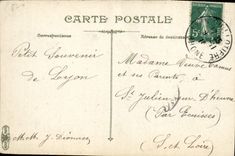 CARTE POSTALE
Correspondance
Adresse du destinataire
Petit Souvenir
de Loyon
M.M. J. Dionnet
Madame Veuve
et ses Parents, à
St Julien sur Dheune
(Par Écuisses)
S. et Loire)